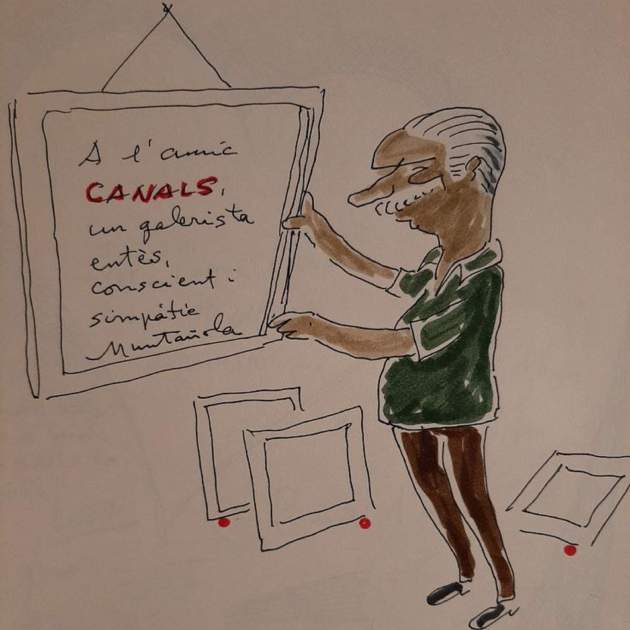 A l'amic
CANALS,
un galerista
entès,
conscient i
simpàtic
Muntañola